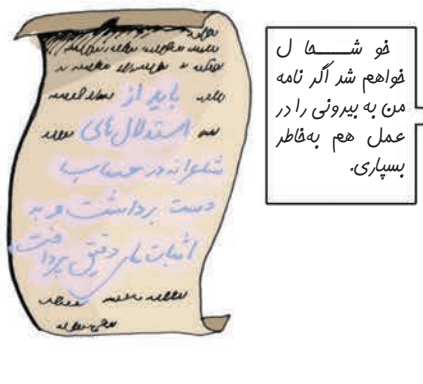 باید از
استدلال‌های
شاعرانه در حساب
دست برداشت و به
اثبات‌های دقیق پردا
خت.
خو شــــحا ل
خواهم شد اگر نامه
من به بیرونی را در
عمل هم به‌خاطر
بسپاری.